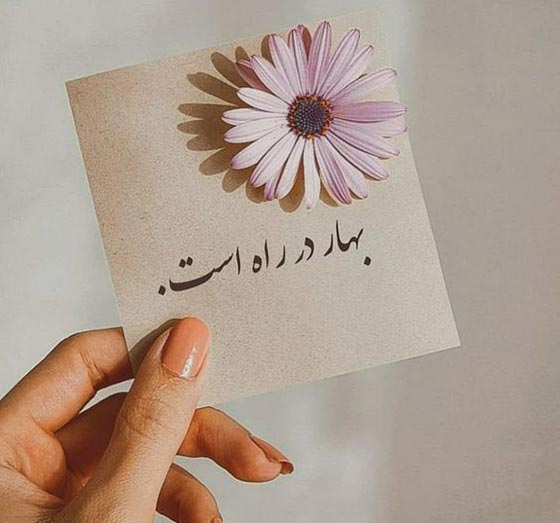 بهار در راه است.